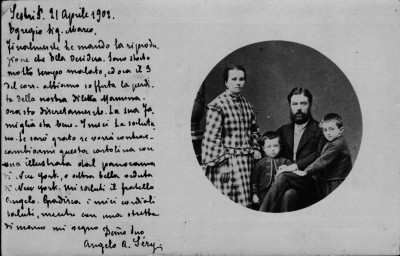 Sestri P. 21 Aprile 1902.
Egregio Sig. Marco,
Finalmente le mando la riprodu-
zione che Ella desidera. Sono stato
molto tempo malato, ed ora il 3
del corr. abbiamo sofferta la perdi-
ta della nostra diletta Mamma.
ora sto discretamente. La sua fa
miglia sta bene. I miei la saluta-
no. Le sarò grato se vorrà contrac-
cambiarmi questa cartolina con
una illustrata dal panorama
di New York, o altra bella veduta
di New York. Mi saluti il fratello
Angelo. Gradisca i miei cordiali
saluti, mentre con una stretta
di mano mi segno
Angelo A.